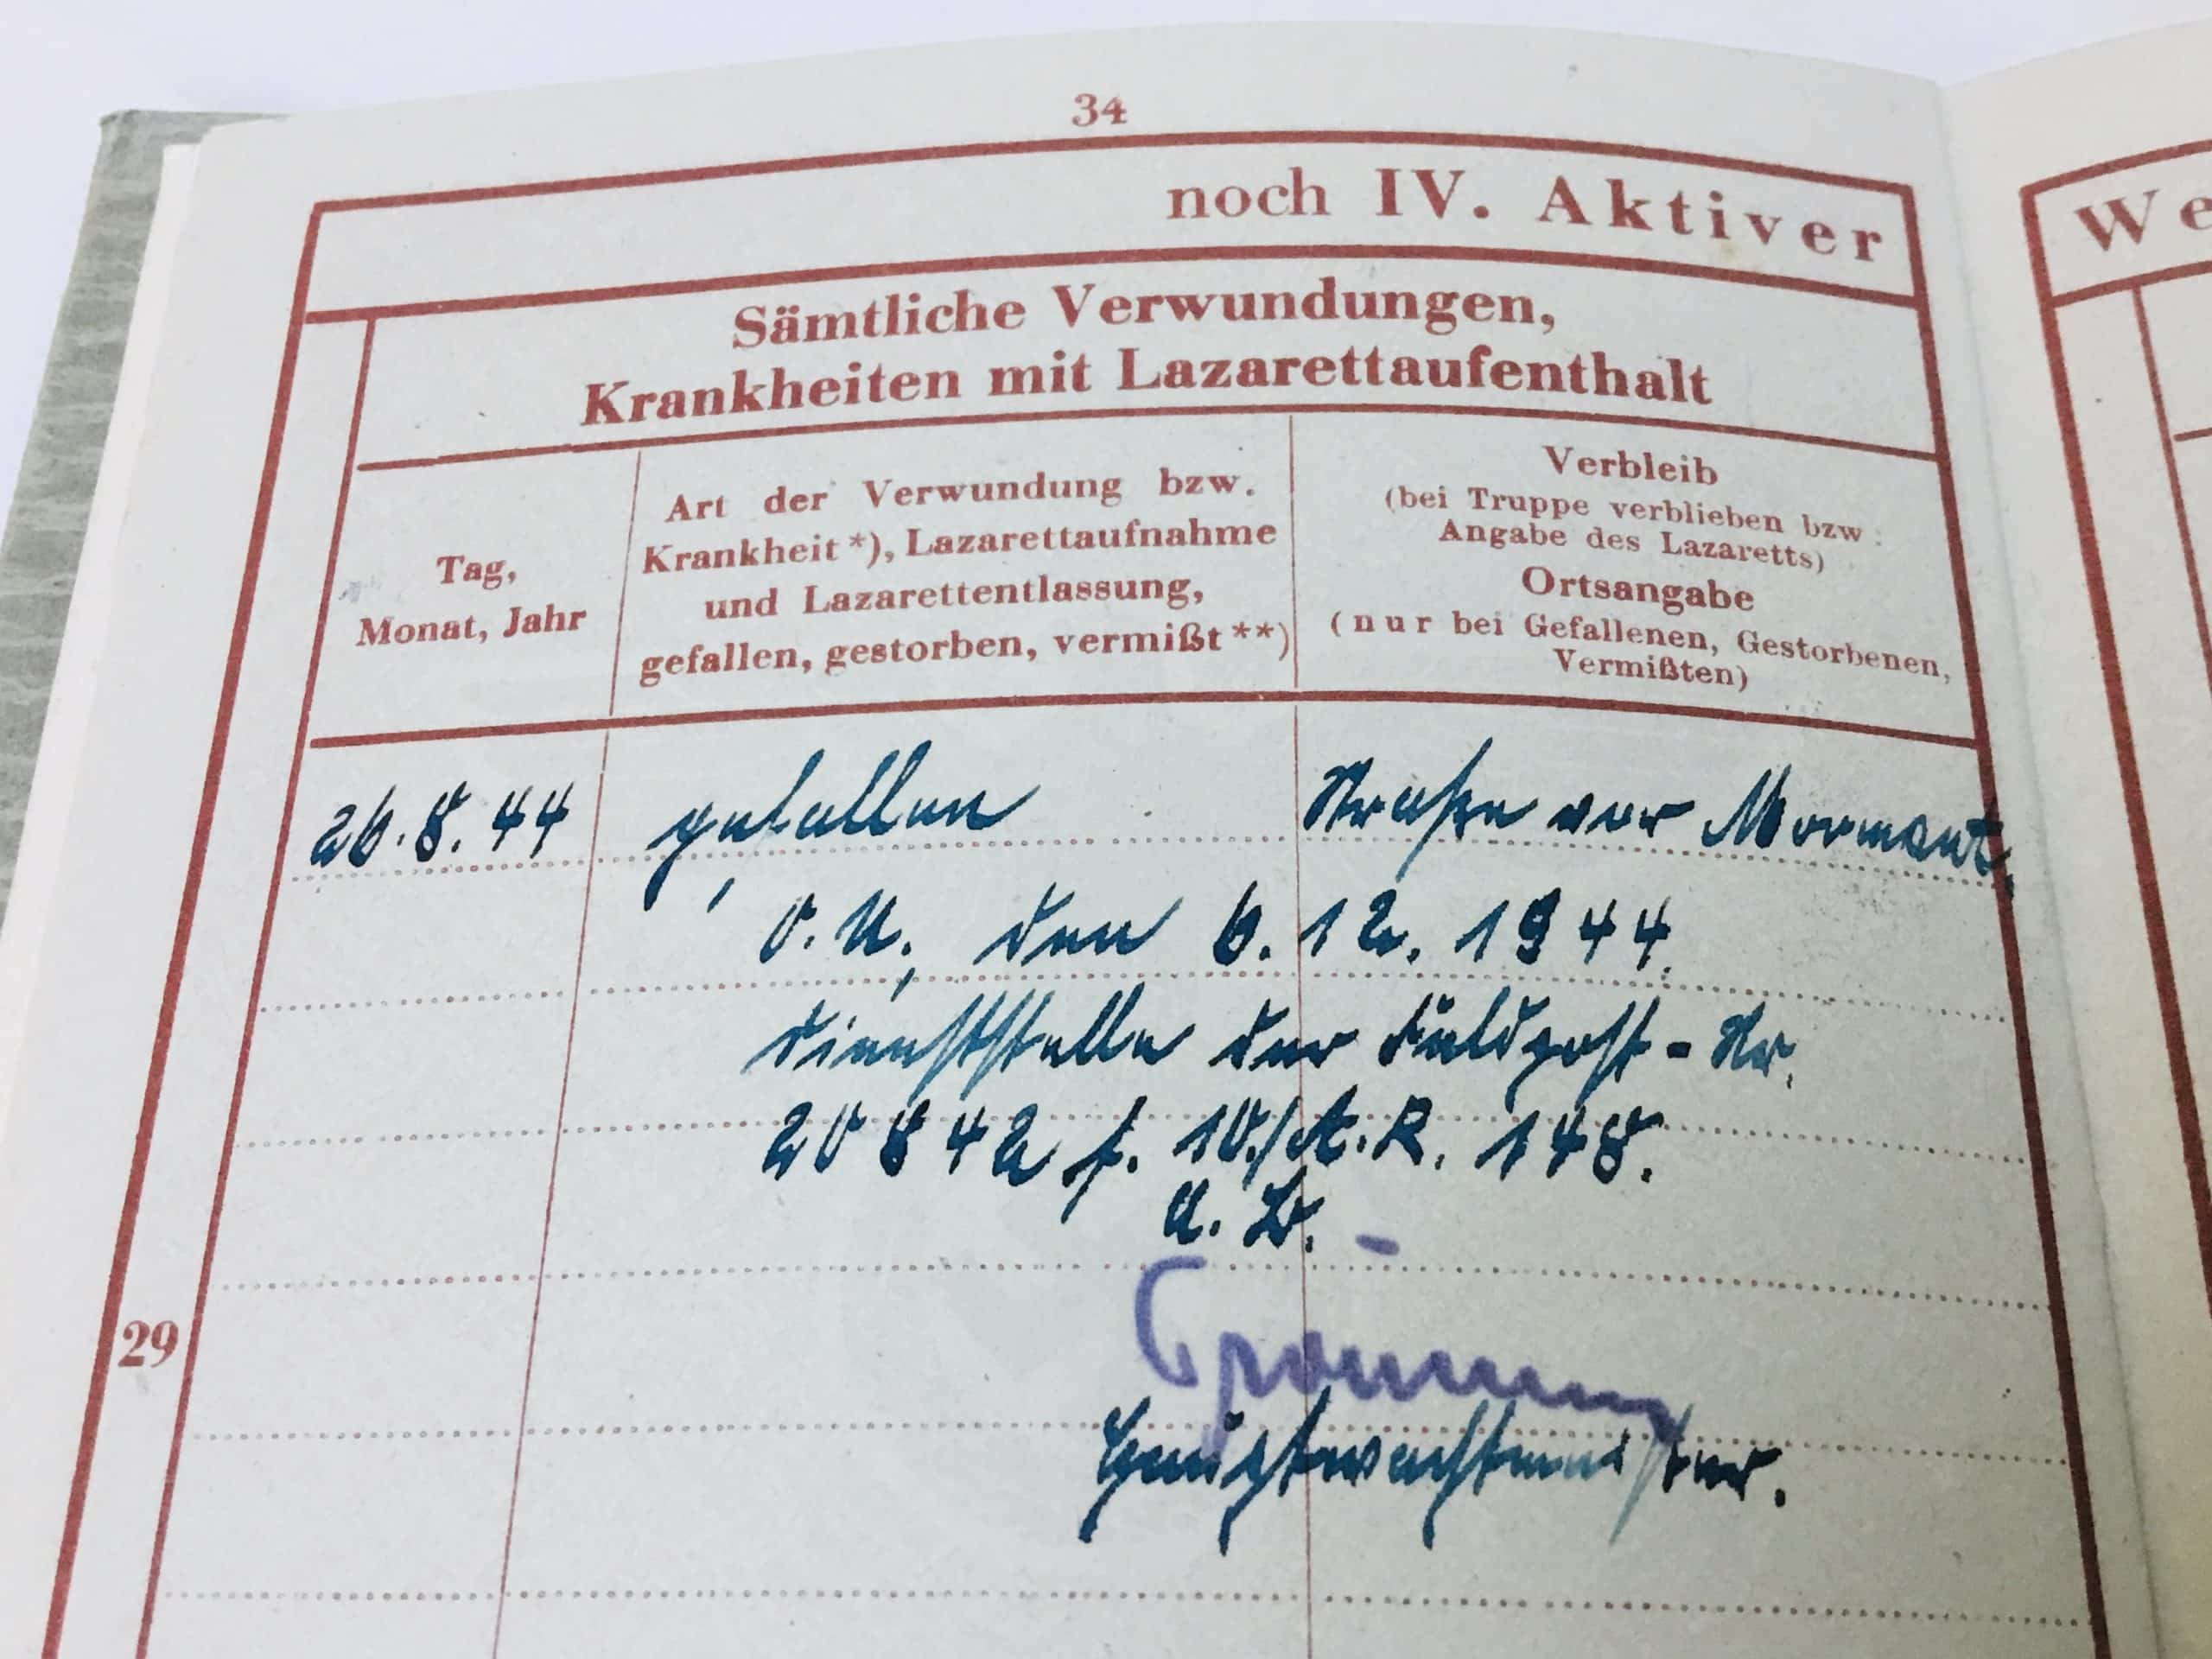 34
noch IV. Aktiver
We
Sämtliche Verwundungen,
Krankheiten mit Lazarettaufenthalt
Tag,
Monat, Jahr
Art der Verwundung bzw.
Krankheit *), Lazarettaufnahme
und Lazarettentlassung,
gefallen, gestorben, vermißt **)
Verbleib
(bei Truppe verblieben bzw.
Angabe des Lazaretts)
Ortsangabe
(nur bei Gefallenen, Gestorbenen,
Vermißten)
26.8.44 gefallen Straße vor Mormant.
O.U., den 6.12.1944.
Dienststelle der Feldpost-Nr.
20842 f. 10./A.R. 148.
29
Hauptwachtmeister.